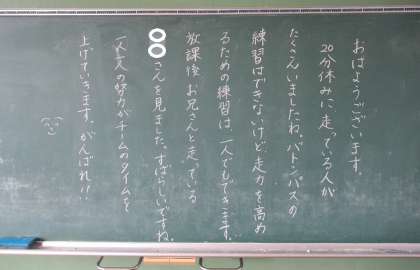 おはようございます。
20分休みに走っている人が
たくさんいましたね。バトンパスの
練習はできないけど走力を高め
るための練習は、一人でもできます。
放課後、お兄さんと走っている
○○さんを見ました。すばらしいですね。
一人一人の努力がチームのタイムを
上げていきます。がんばれ!!